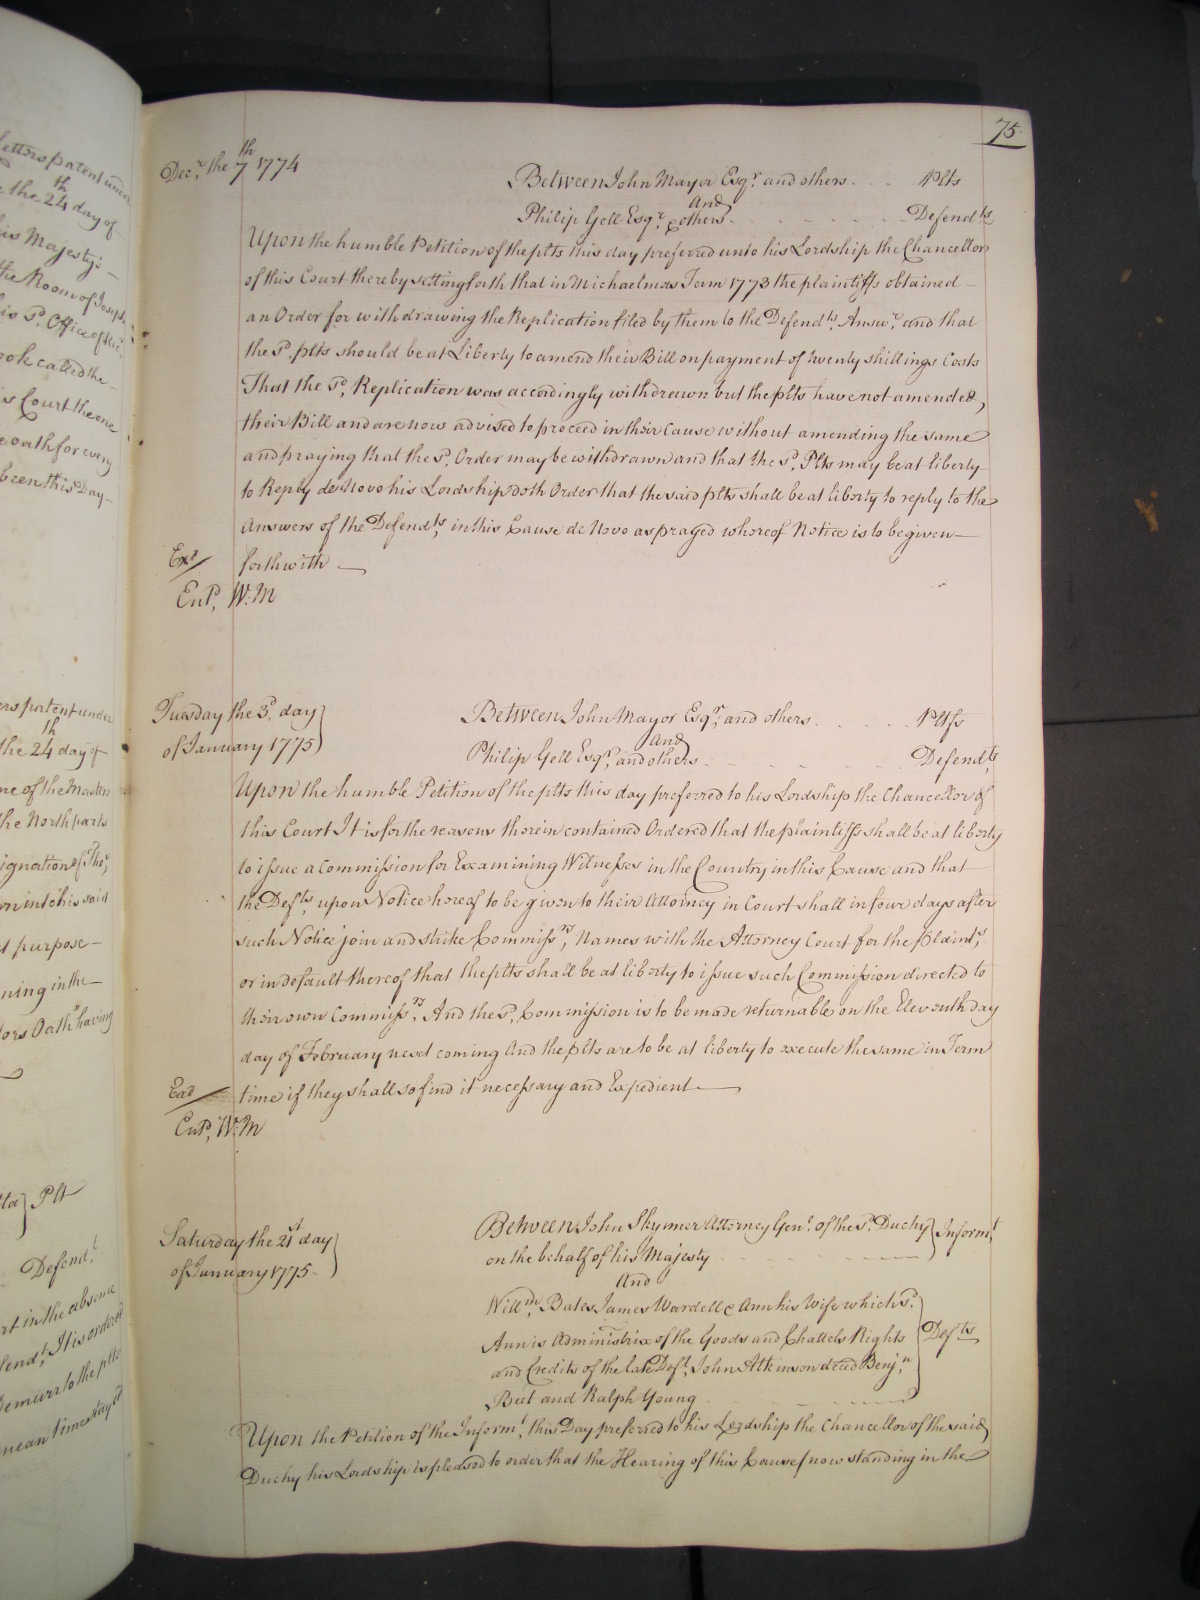 75.
Decr. the 7th 1774
Between John Mayor Esqr. and others . . . Plts
And
Philip Gell Esqr. & others . . . . . . . . Defendts
Upon the humble Petition of the plts this day preferred unto his Lordship the Chancellor
of this Court thereby setting forth that in Michaelmas Term 1773 the plaintiffs obtained
an Order for withdrawing the Replication filed by them to the Defendts. Answr. and that
the sd. plts should be at Liberty to amend their Bill on payment of twenty shillings Costs
That the sd. Replication was accordingly withdrawn but the plts have not amended
their Bill and are now advised to proceed in their Cause without amending the same
and praying that the sd. Order may be withdrawn and that the sd. Plts may be at liberty
to Reply de Novo his Lordship doth Order that the said plts shall be at liberty to reply to the
Answers of the Defendts. in this Cause de Novo as prayed whereof Notice is to be given
forthwith
Exd
End. W. M
Tuesday the 3d. day
of January 1775
Between John Mayor Esqr. and others . . . . Pltfs
And
Philip Gell Esqr. and others . . . . . . . Defendts.
Upon the humble Petition of the plts this day preferred to his Lordship the Chancellor of
this Court It is for the reasons therein contained Ordered that the plaintiffs shall be at liberty
to issue a Commission for Examining Witnesses in the Country in this Cause and that
the Defts. upon Notice hereof to be given to their Attorney in Court shall in four days after
such Notice join and strike Commissrs. Names with the Attorney Court for the Plaints.
or in default thereof that the plts shall be at liberty to issue such Commission directed to
their own Commissrs. And the sd. Commission is to be made returnable on the Eleventh day
day of February next coming And the plts are to be at liberty to execute the same in Term
time if they shall so find it necessary and Expedient
Exd
End. W. M
Saturday the 21st day
of January 1775
Between John Skynner Attorney Genl. of the sd. Duchy
on the behalf of his Majesty
Informt.
And
Willm. Bates James Wardell & Ann his Wife which sd.
Ann is Administrix of the Goods and Chattels Rights
and Credits of the late Deft. John Atkinson deced Benjn.
Beet and Ralph Young
Defts
Upon the Petition of the Informt. this Day preferred to his Lordship the Chancellor of the said
Duchy his Lordship is pleased to order that the Hearing of this Cause (now standing in the